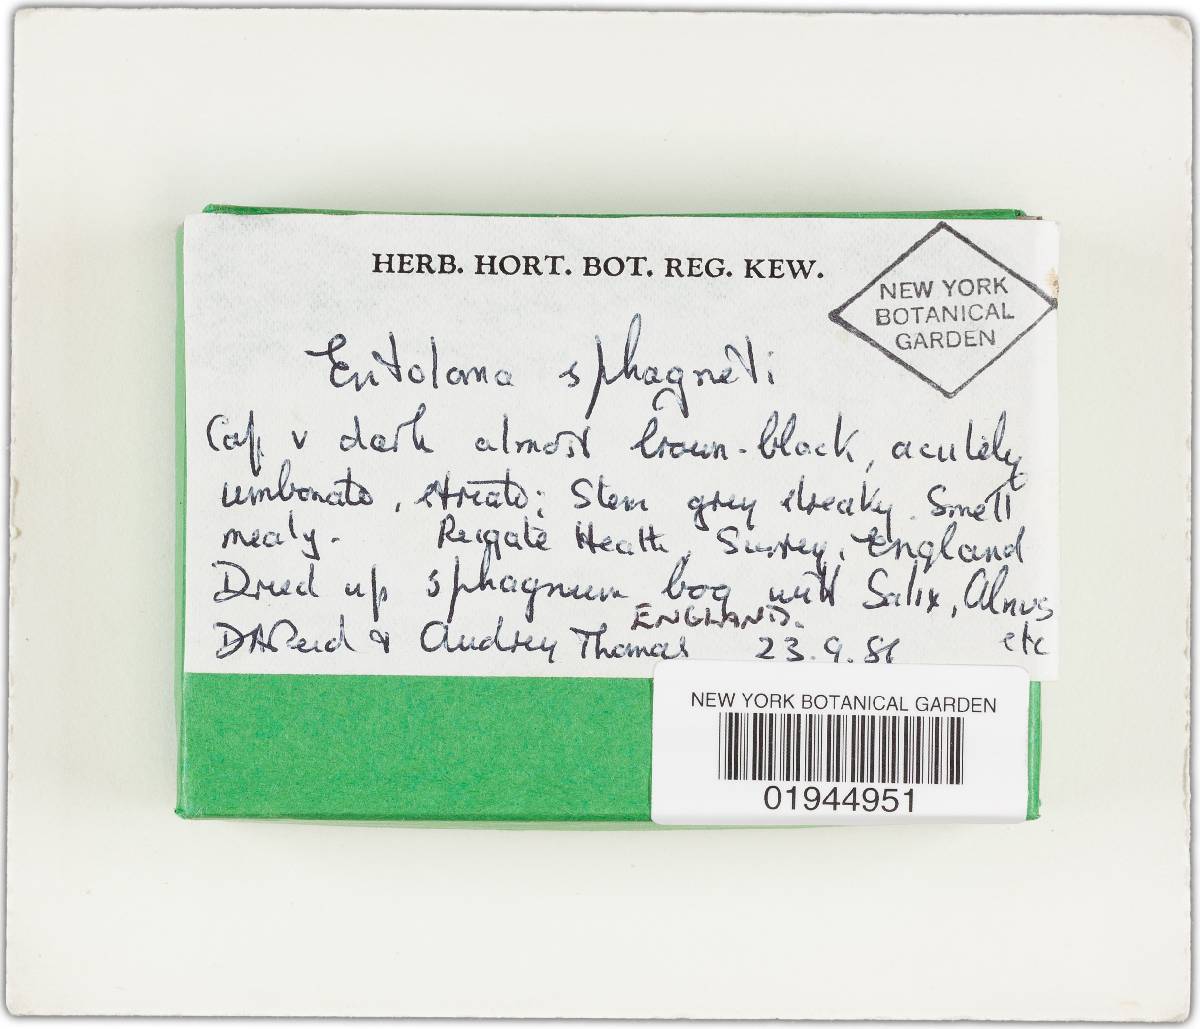 HERB. HORT. BOT. REG. KEW.
NEW YORK
BOTANICAL
GARDEN
Entoloma sphagneti
Cap v dark almost brown-black, acutely
umbonate, striate; Stem grey streaky. Smell
mealy. Reigate Heath, Surrey, England
Dried up sphagnum bog with Salix, Alnus
etc
ENGLAND.
DAReid & Audrey Thomas 23.9.
NEW YORK BOTANICAL GARDEN
01944951